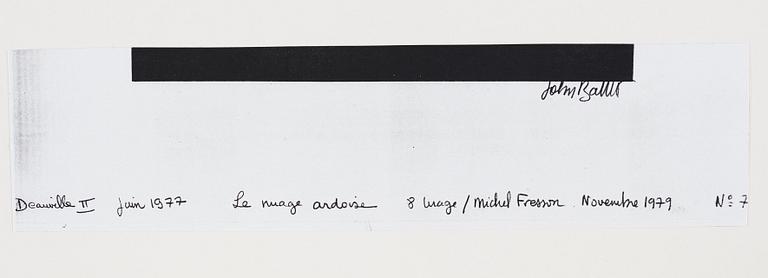 John Batho
Deauville II juin 1977 Le nuage ardoise 8 image / Michel Fresson Novembre 1979 Nº 7